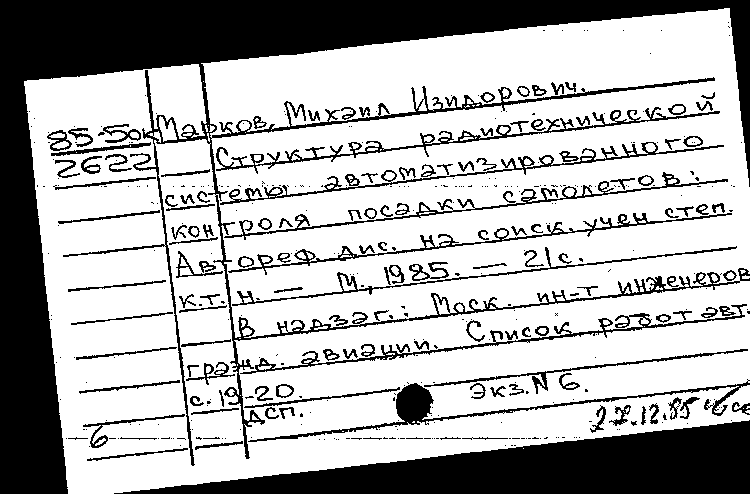 85-5ок Марков, Михаил Изидорович.
2622 Структура радиотехнической
системы автоматизированного
контроля посадки самолетов:
Автореф. дис. на соиск. учен. степ.
к.т.н. — М., 1985. — 21 с.
В надзаг.: Моск. ин-т инженеров
гражд. авиации. Список работ авт.
с. 19-20.
ДСП. Экз. N 6.
6 27.12.85